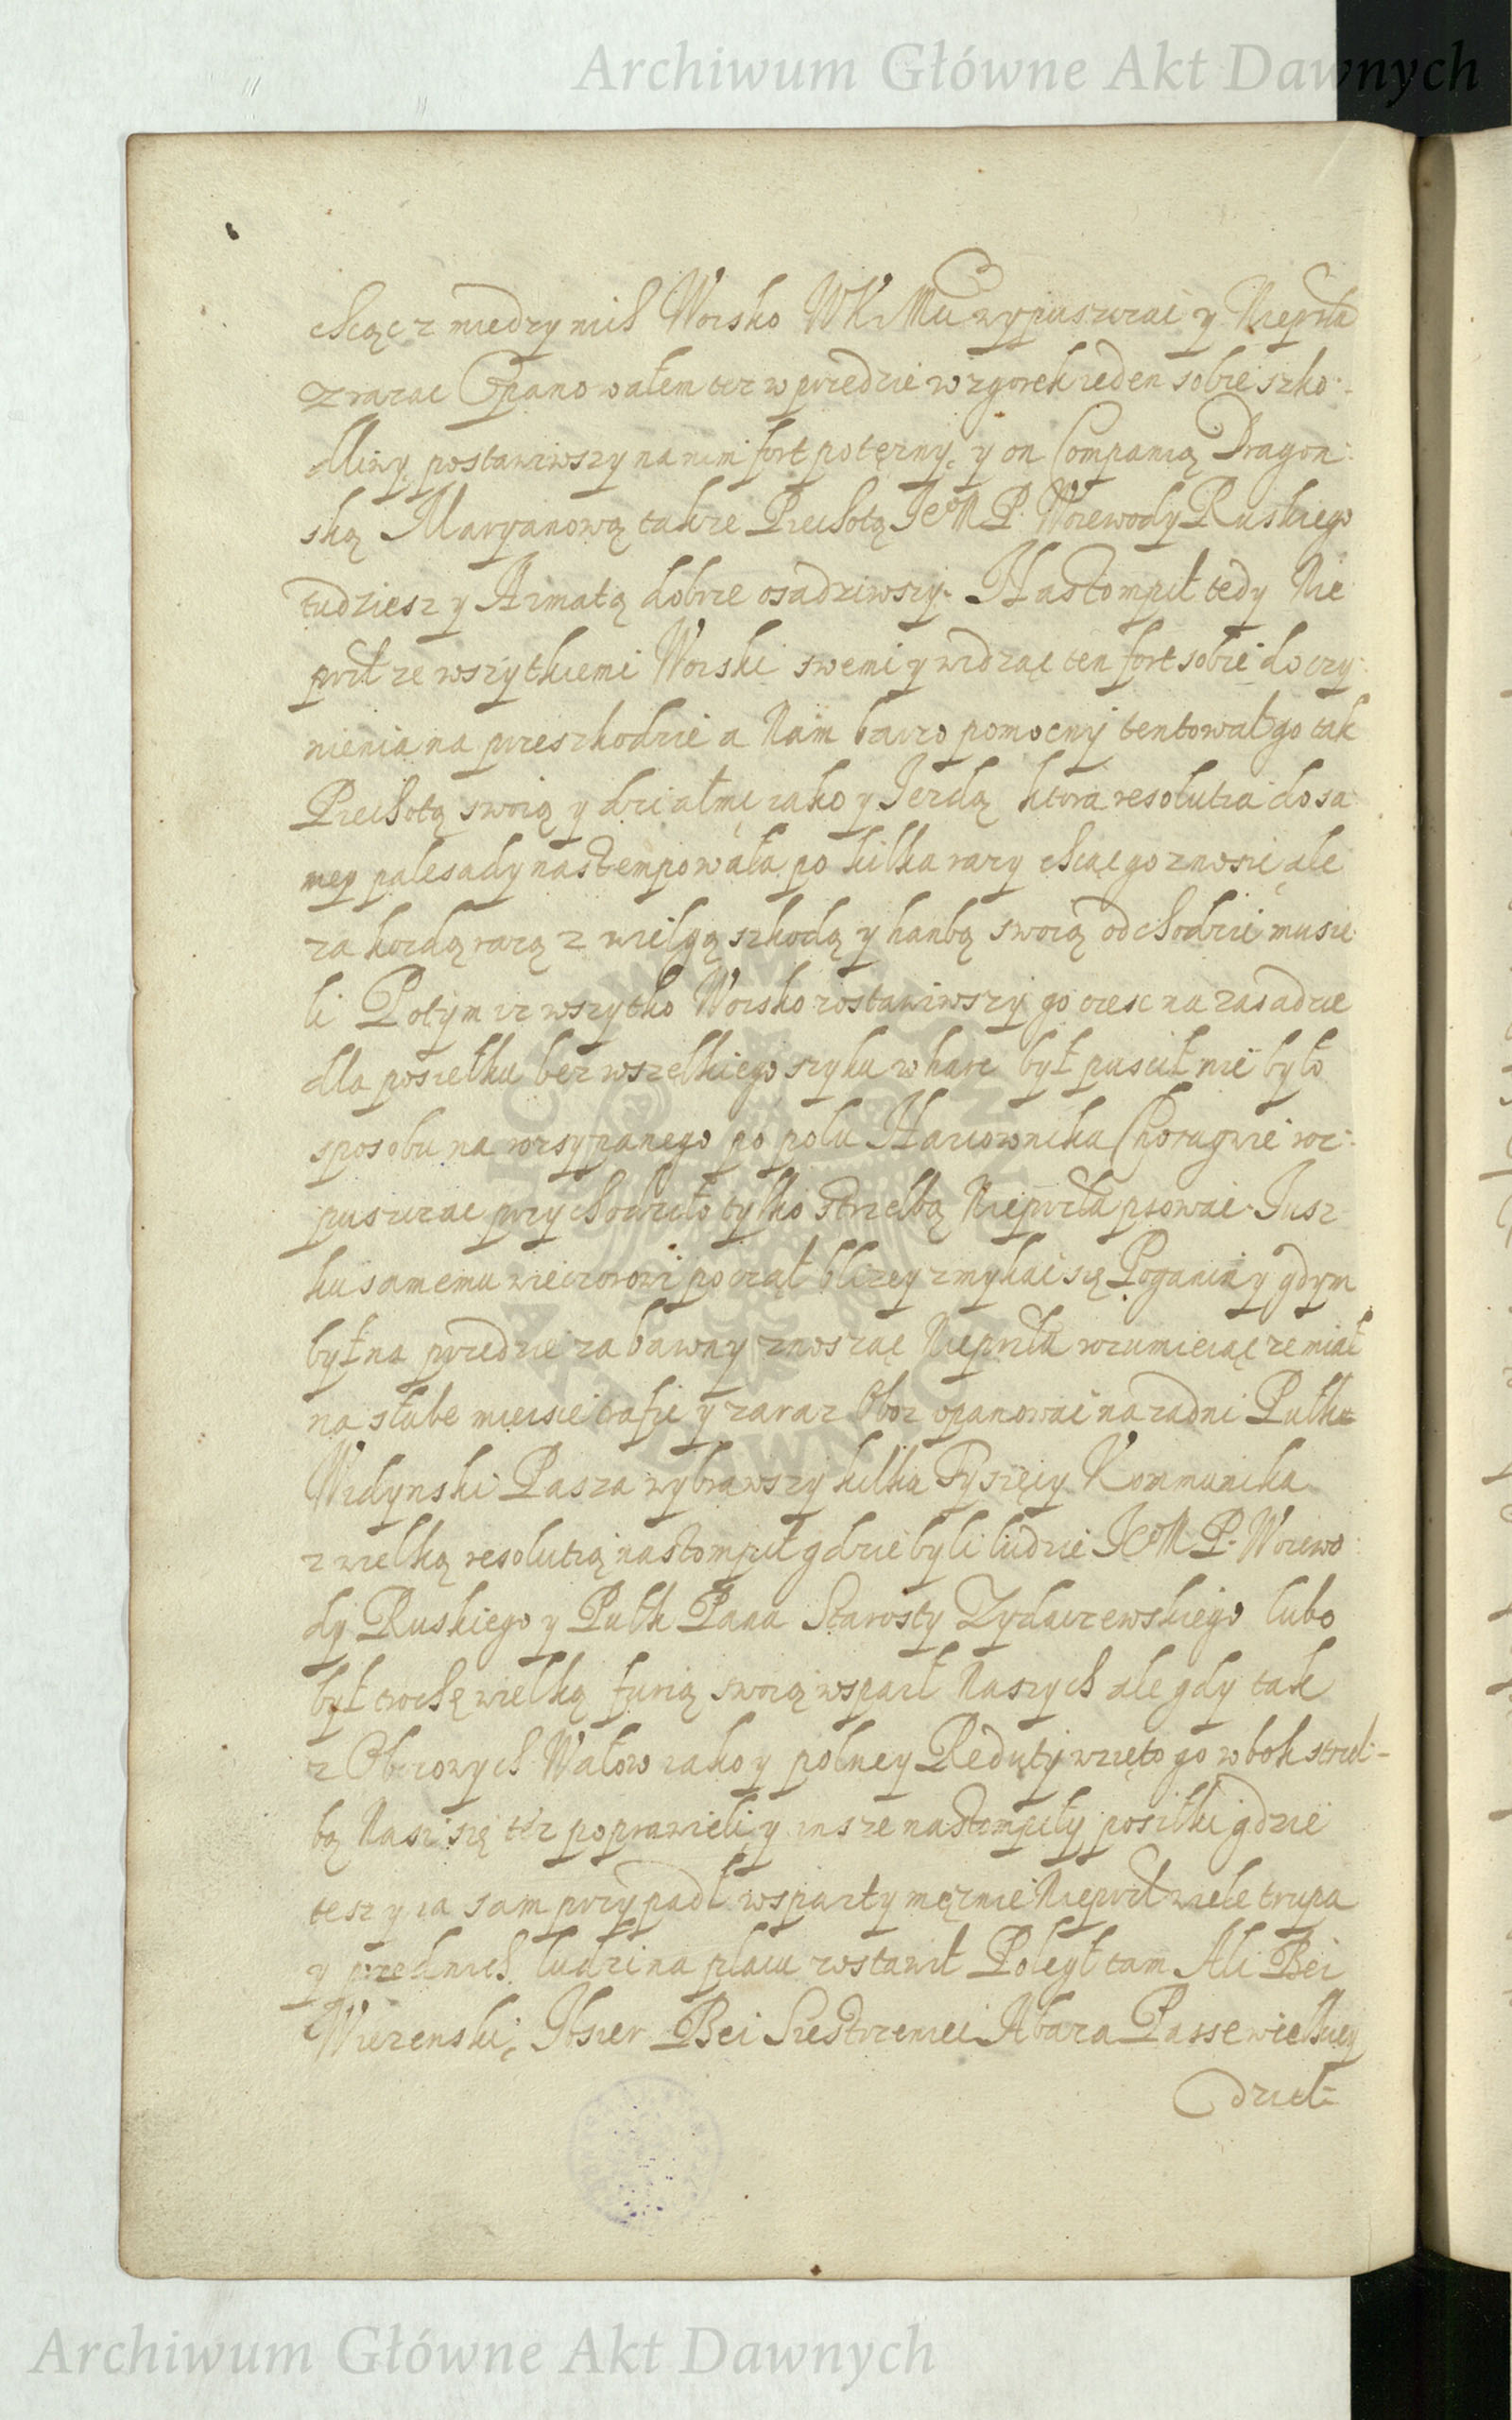 Archiwum Główne Akt Dawnych
chcąc z miedzy nich Woisko WKMci wypuszczac y Nieprła
zrazac Opanowałem tez w przedzie wzgorek ieden sobie szko-
dliwy postawiwszy na nim fort potęzny, y on Companią Dragon-
ską Maryanową takze Piechotą JeoM P. Woiewody Ruskiego
tudziesz y Armatą dobrze osadziwszy. Nastompił tedy Nie
prół ze wszytkiemi Woiski swemi y widząc ten fort sobie do czy-
nienia na przeszkodzie a Nam barzo pomocny tentował go tak
Piechotą swoią y działmi iako y Jezdą ktora resolutia do sa
mey palesady nastempowała po kilka razy chcąc go znosic ale
za kozdą razą z wielgą szkodą y hanbą swoią odchodzic musie
li Potym iz wszytko Woisko zostawiwszy go czesc na zasadzie
dla posiełku bez wszelkiego szyku w harc był puscił nie było
sposobu na rozsypanego po polu Harcownika Chorągwie wy-
puszczac przychodziło tylko strzelbą Nieprła psowac. Jusz
ku samemu wieczorowi począł blizey zmykac się Poganin y gdym
był na przedzie zabawny znosząc Nieprła rozumieiąc ze miał
na słabe mieisce trafic y zaraz Oboz opanowac na zadni Pułk
Widynski Pasza wybrawszy kilka Tysięcy Kommunika
z wielką resolutią nastompił gdzie byli ludzie JeoM P. Woiewo
dy Ruskiego y Pułk Pana Starosty Zydaczewskiego lubo
był trochę wielką furią swoią wsparł Naszych ale gdy tak
z Obozowych Wałow iako y polney Reduty wzięto go w bok strzel-
bą Nasi się tez poprawieli y insze nastempiły posiłki gdzie
tesz y ia sam przypadł wsparty męznie Nieprół wiele trupa
y przednich ludzi na placu zostawił Poległ tam Ali Bei
Wizenski, Ibsier Bei Siestrzeniec Abaza Passe wielkiey
dziel-
Archiwum Główne Akt Dawnych